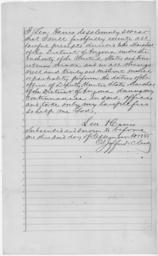 I, Geo. Hovis do solemnly swear
that I will faithfully execute all
lawful precepts directed to the Marshal
of the District of Oregon under the
authority of the United States and true
returns make and in all things
well and truly and without malice
or partiality perform the duties of the
office of Deputy United States Marshal
of the District of Oregon during my
continuance in said office
and take only my lawful fees
So help me God.
Subscribed and sworn to before
me this day of